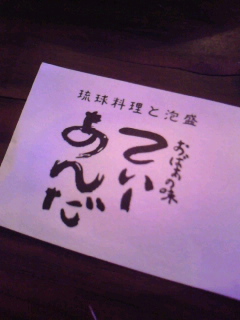 琉球料理と泡盛
おばぁの味
てぃー
あんだ